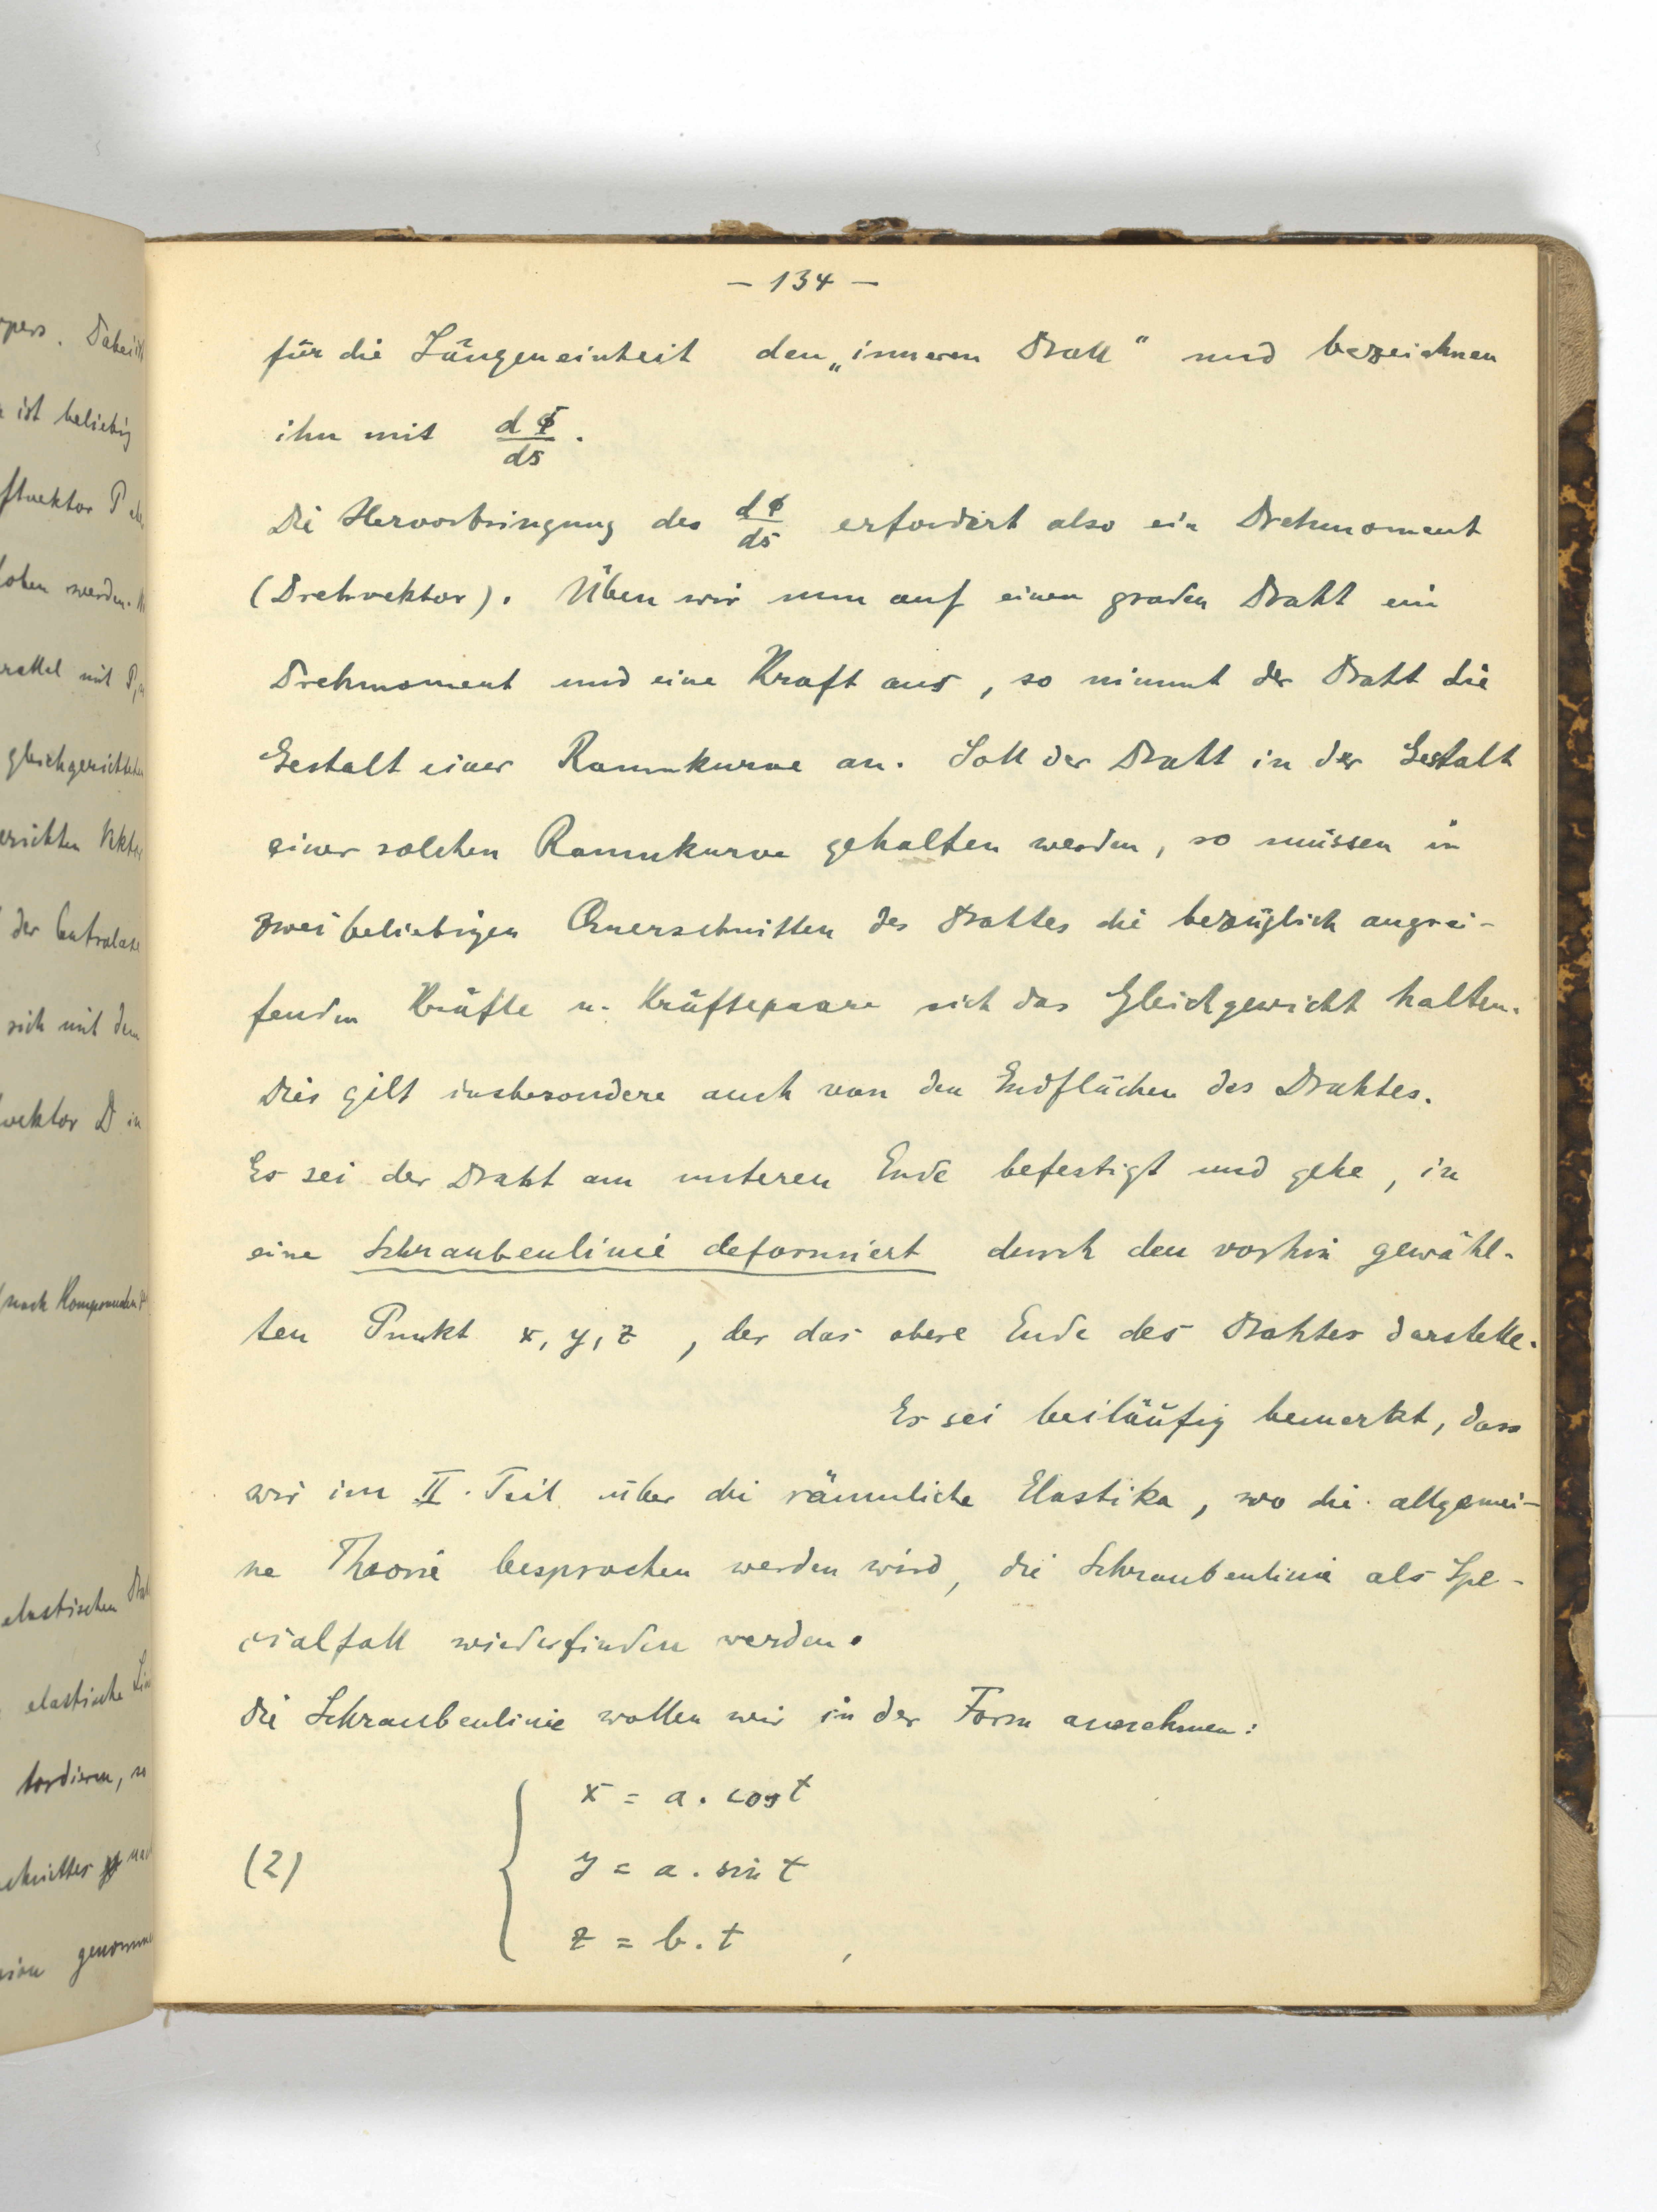 — 134 —
für die Längeneinheit den „inneren Drall" und bezeichnen
ihn mit dΦ/ds.
Die Hervorbringung des dΦ/ds erfordert also ein Drehmoment
(Drehvektor). Üben wir nun auf einen graden Draht ein
Drehmoment und eine Kraft aus, so nimmt der Draht die
Gestalt einer Raumkurve an. Soll der Draht in der Gestalt
einer solchen Raumkurve gehalten werden, so müssen in
zwei beliebigen Querschnitten des Drahtes die bezüglich angrei-
fenden Kräfte u. Kräftepaare sich das Gleichgewicht halten.
Dies gilt insbesondere auch von den Endflächen des Drahtes.
Es sei der Draht am unteren Ende befestigt und gehe, in
eine Schraubenlinie deformiert durch den vorhin gewähl-
ten Punkt x, y, z, der das obere Ende des Drahtes darstelle.
Es sei beiläufig bemerkt, dass
wir im II. Teil über die räumliche Elastika, wo die allgemei-
ne Theorie besprochen werden wird, die Schraubenlinie als Spe-
cialfall wiederfinden werden.
Die Schraubenlinie wollen wir in der Form annehmen:
x = a. cos t
(2) y = a. sin t
z = b. t ,
ist beliebig
werden.
mit P,
der Centralaxe
sich mit dem
vektor D in
nach Komponenten
elastischen
elastische
tordieren, so